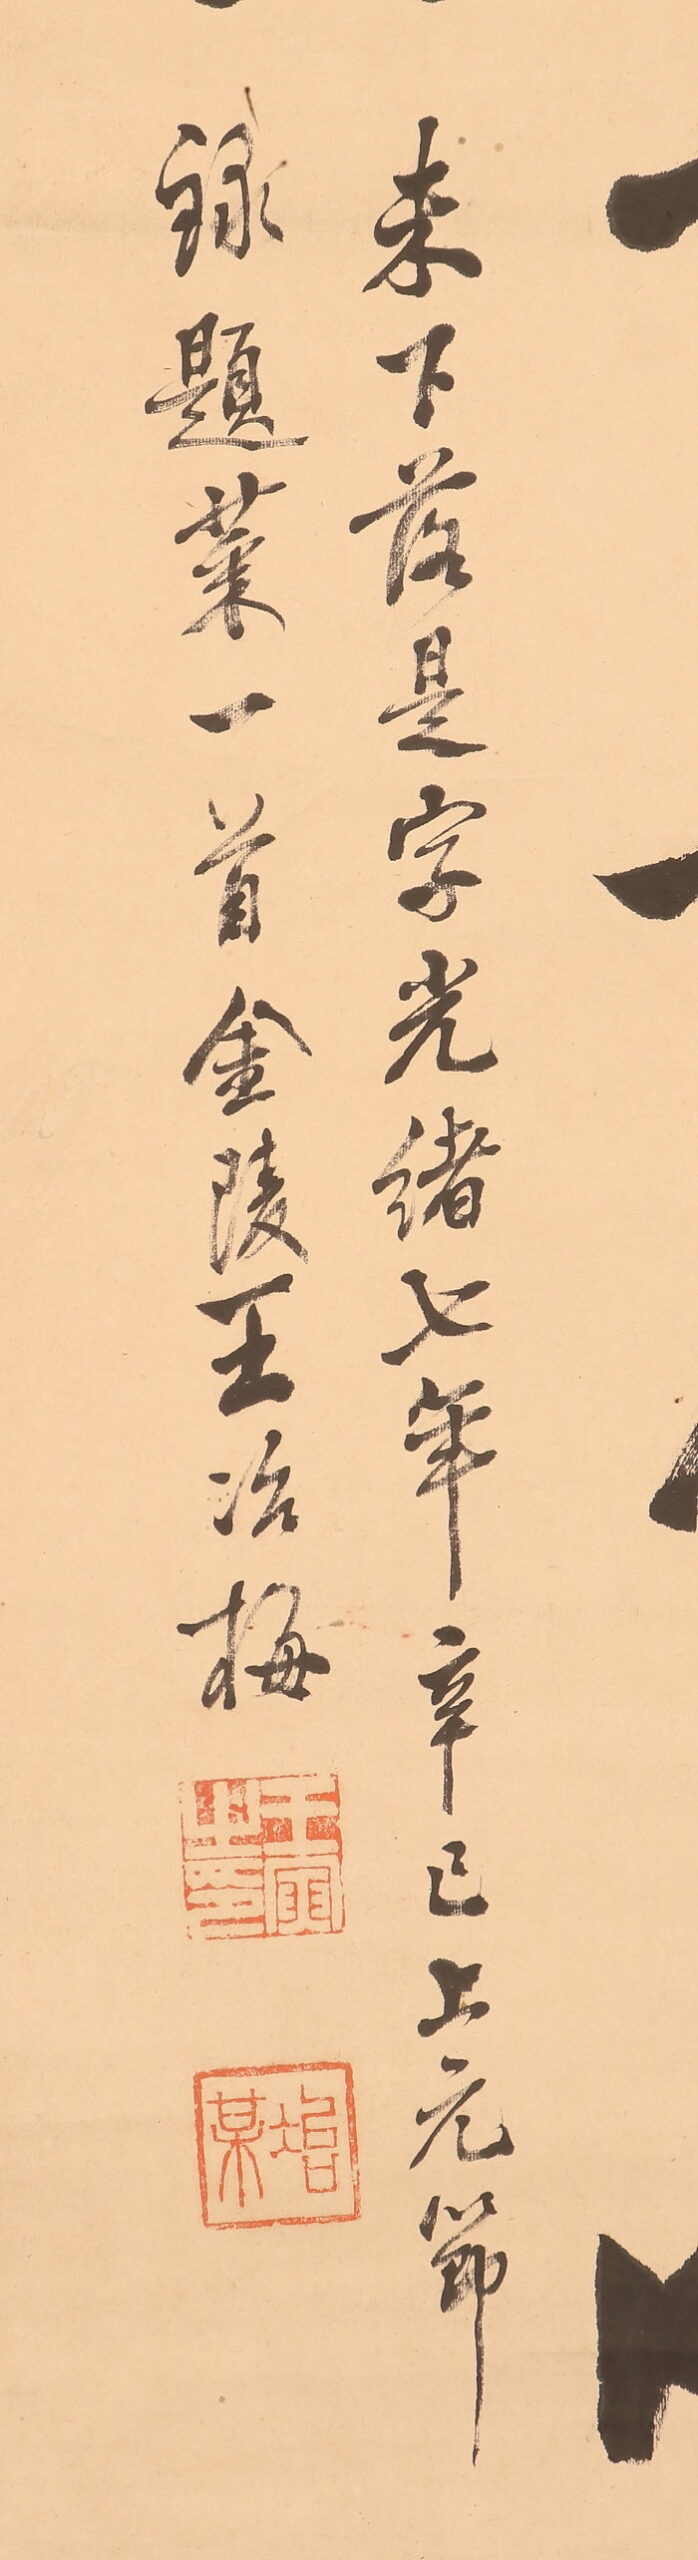 来下落是字光緒七年辛巳上元節
録題菜一首金陵王冶梅
王寅之印
冶某